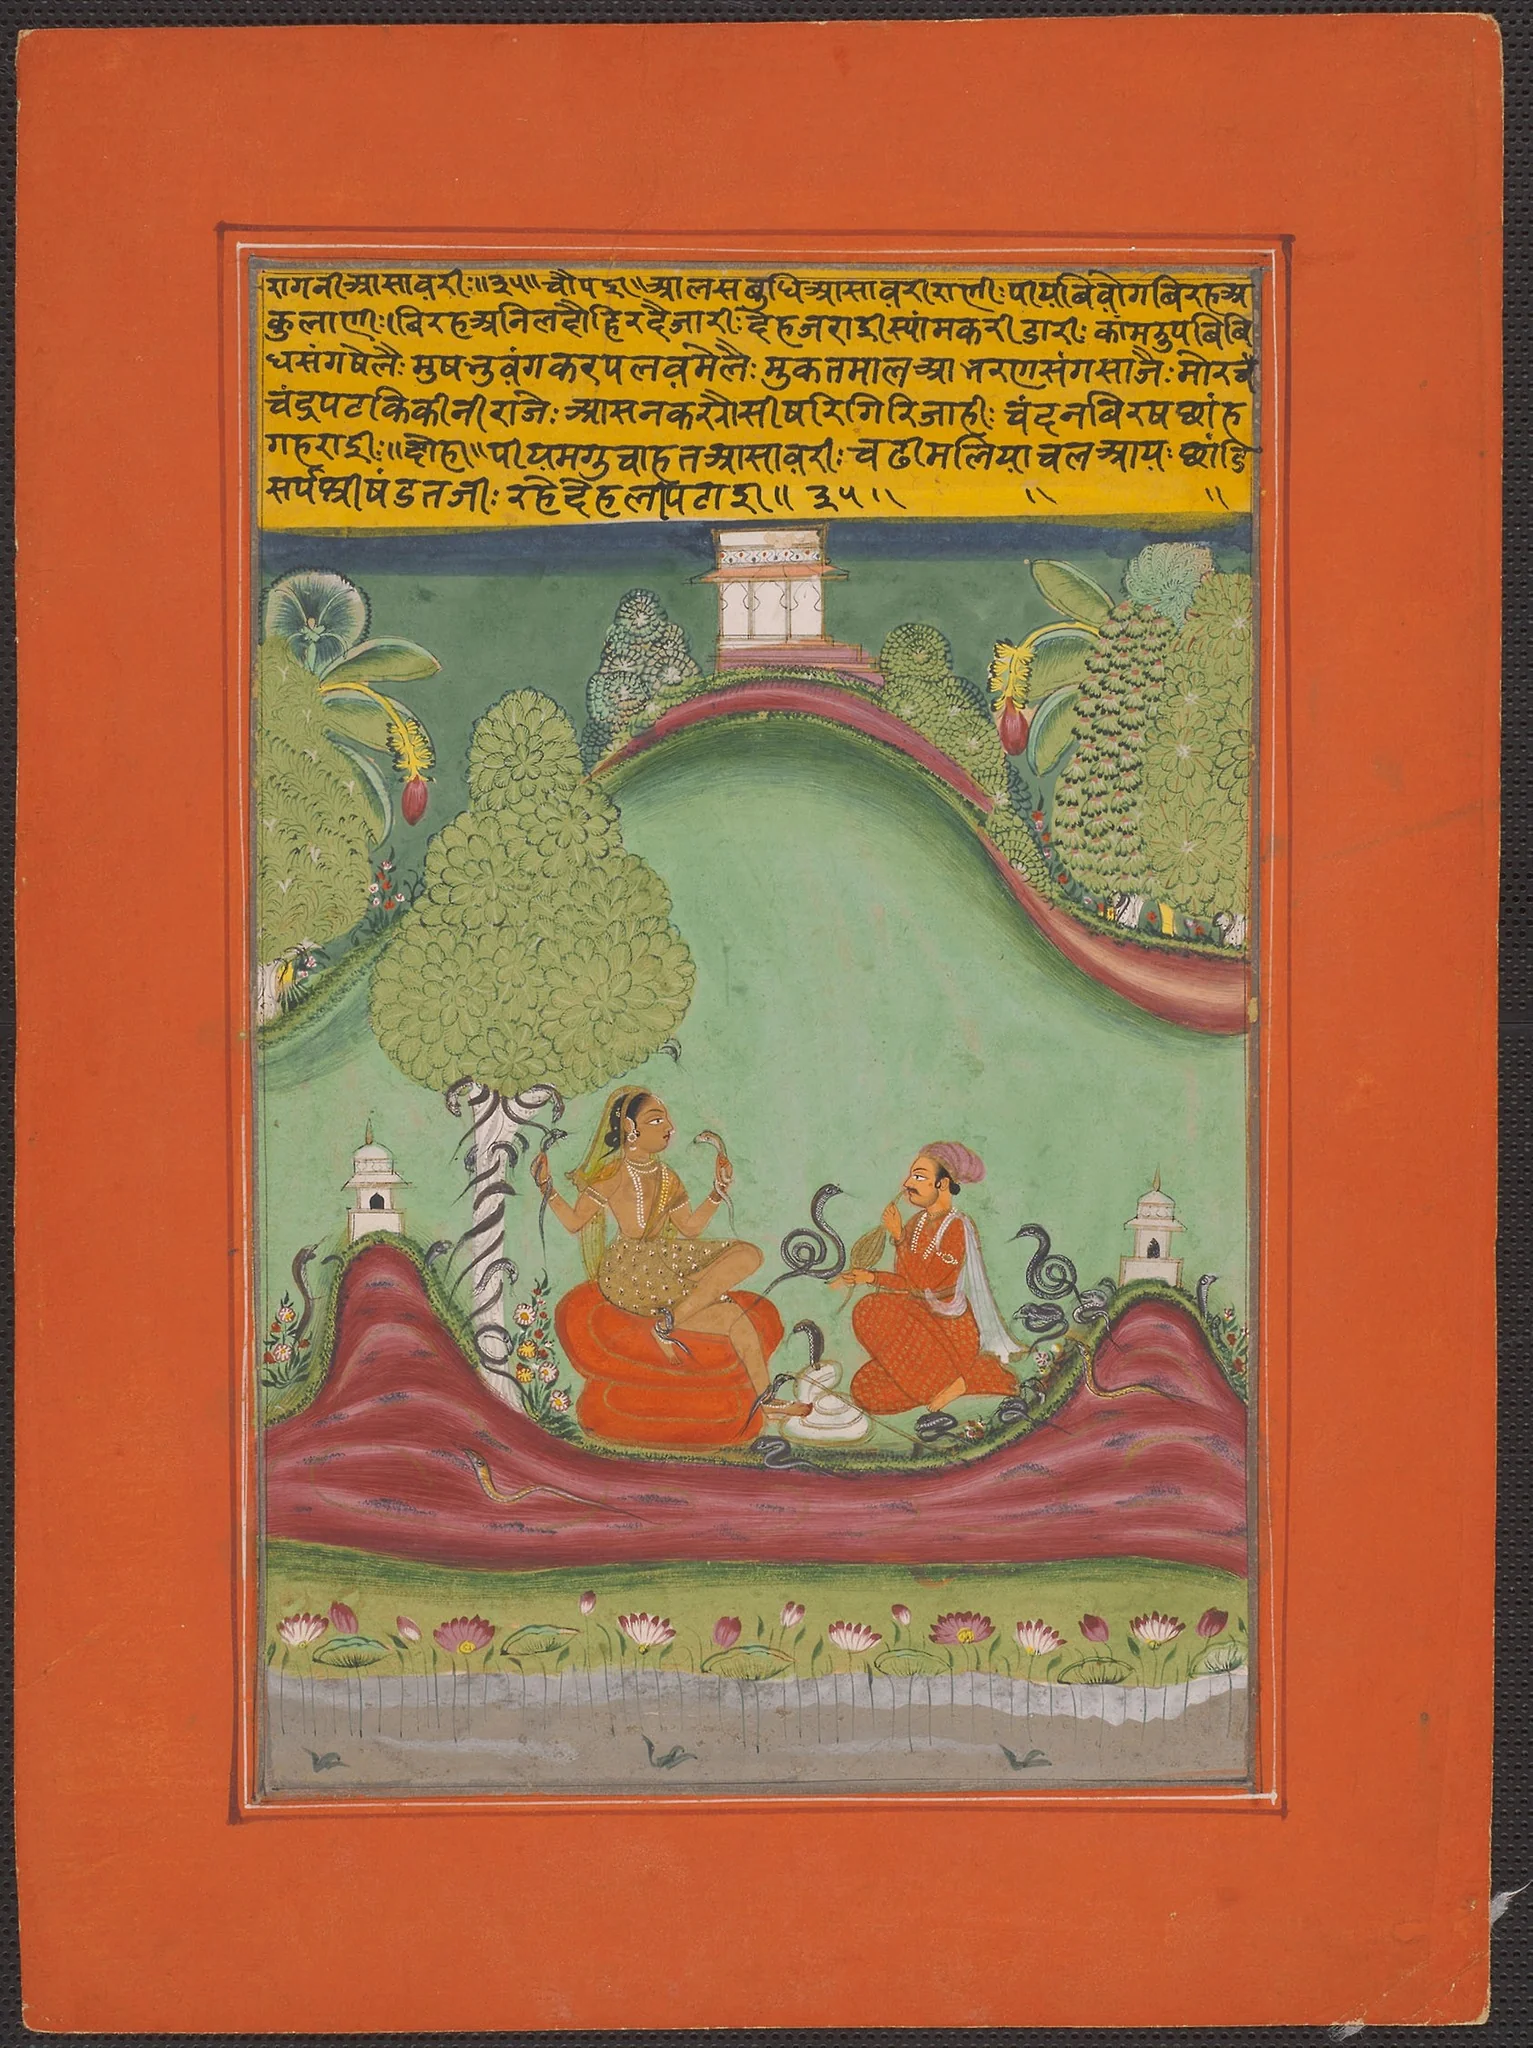 रागनी आसावरी:॥३५॥ चौपई॥ आलस बुधि आसावरी राणी: पीय बिवोग बिरह अ
कुलाणी:। बिरह अनिल दौं हिरदै जारी: देह जराई स्यांम करी डारी: कांम बिबि
ध संग षेलै: मुष करपलव मेलै: मुकतमाल आभरण संग साजै: मोर चं
चंद्र पट किंकीनी राजै: आसन कर सीषरि गिरि जाही: चंदन बिरष छांह
गहराई:॥ दोहा॥ पीय मगु चाहत आसावरी: चढी मलियाचल आय: छांडि
सर्प श्रीषंड तजी: रहै देह लपिटाई॥ ३५॥ ॥ ॥